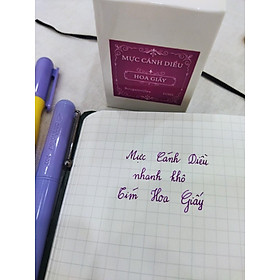 MỰC CÁNH DIỀU
HOA GIẤY
Mực Cánh Diều
nhanh khô
Tím Hoa Giấy